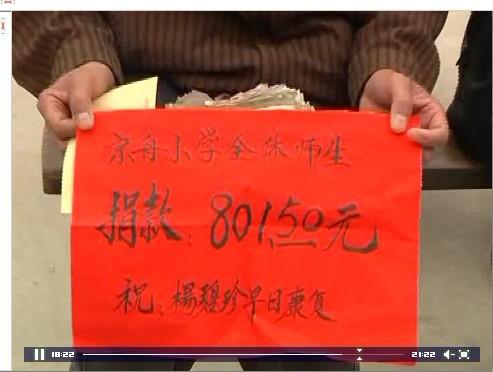 京舟小学全体师生
捐款：801.50元
祝：楊碧珍早日康复
18:22
21:22